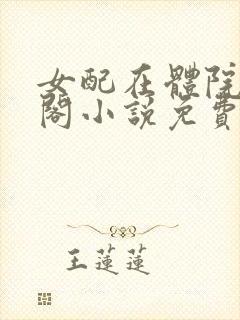 女配在體院
閣小説免費
王蓮蓮